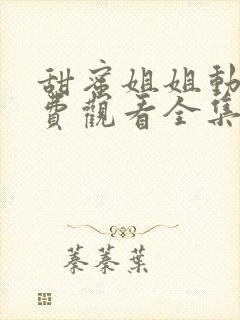 甜蜜姐姐動
費觀看全集
蓁蓁葉